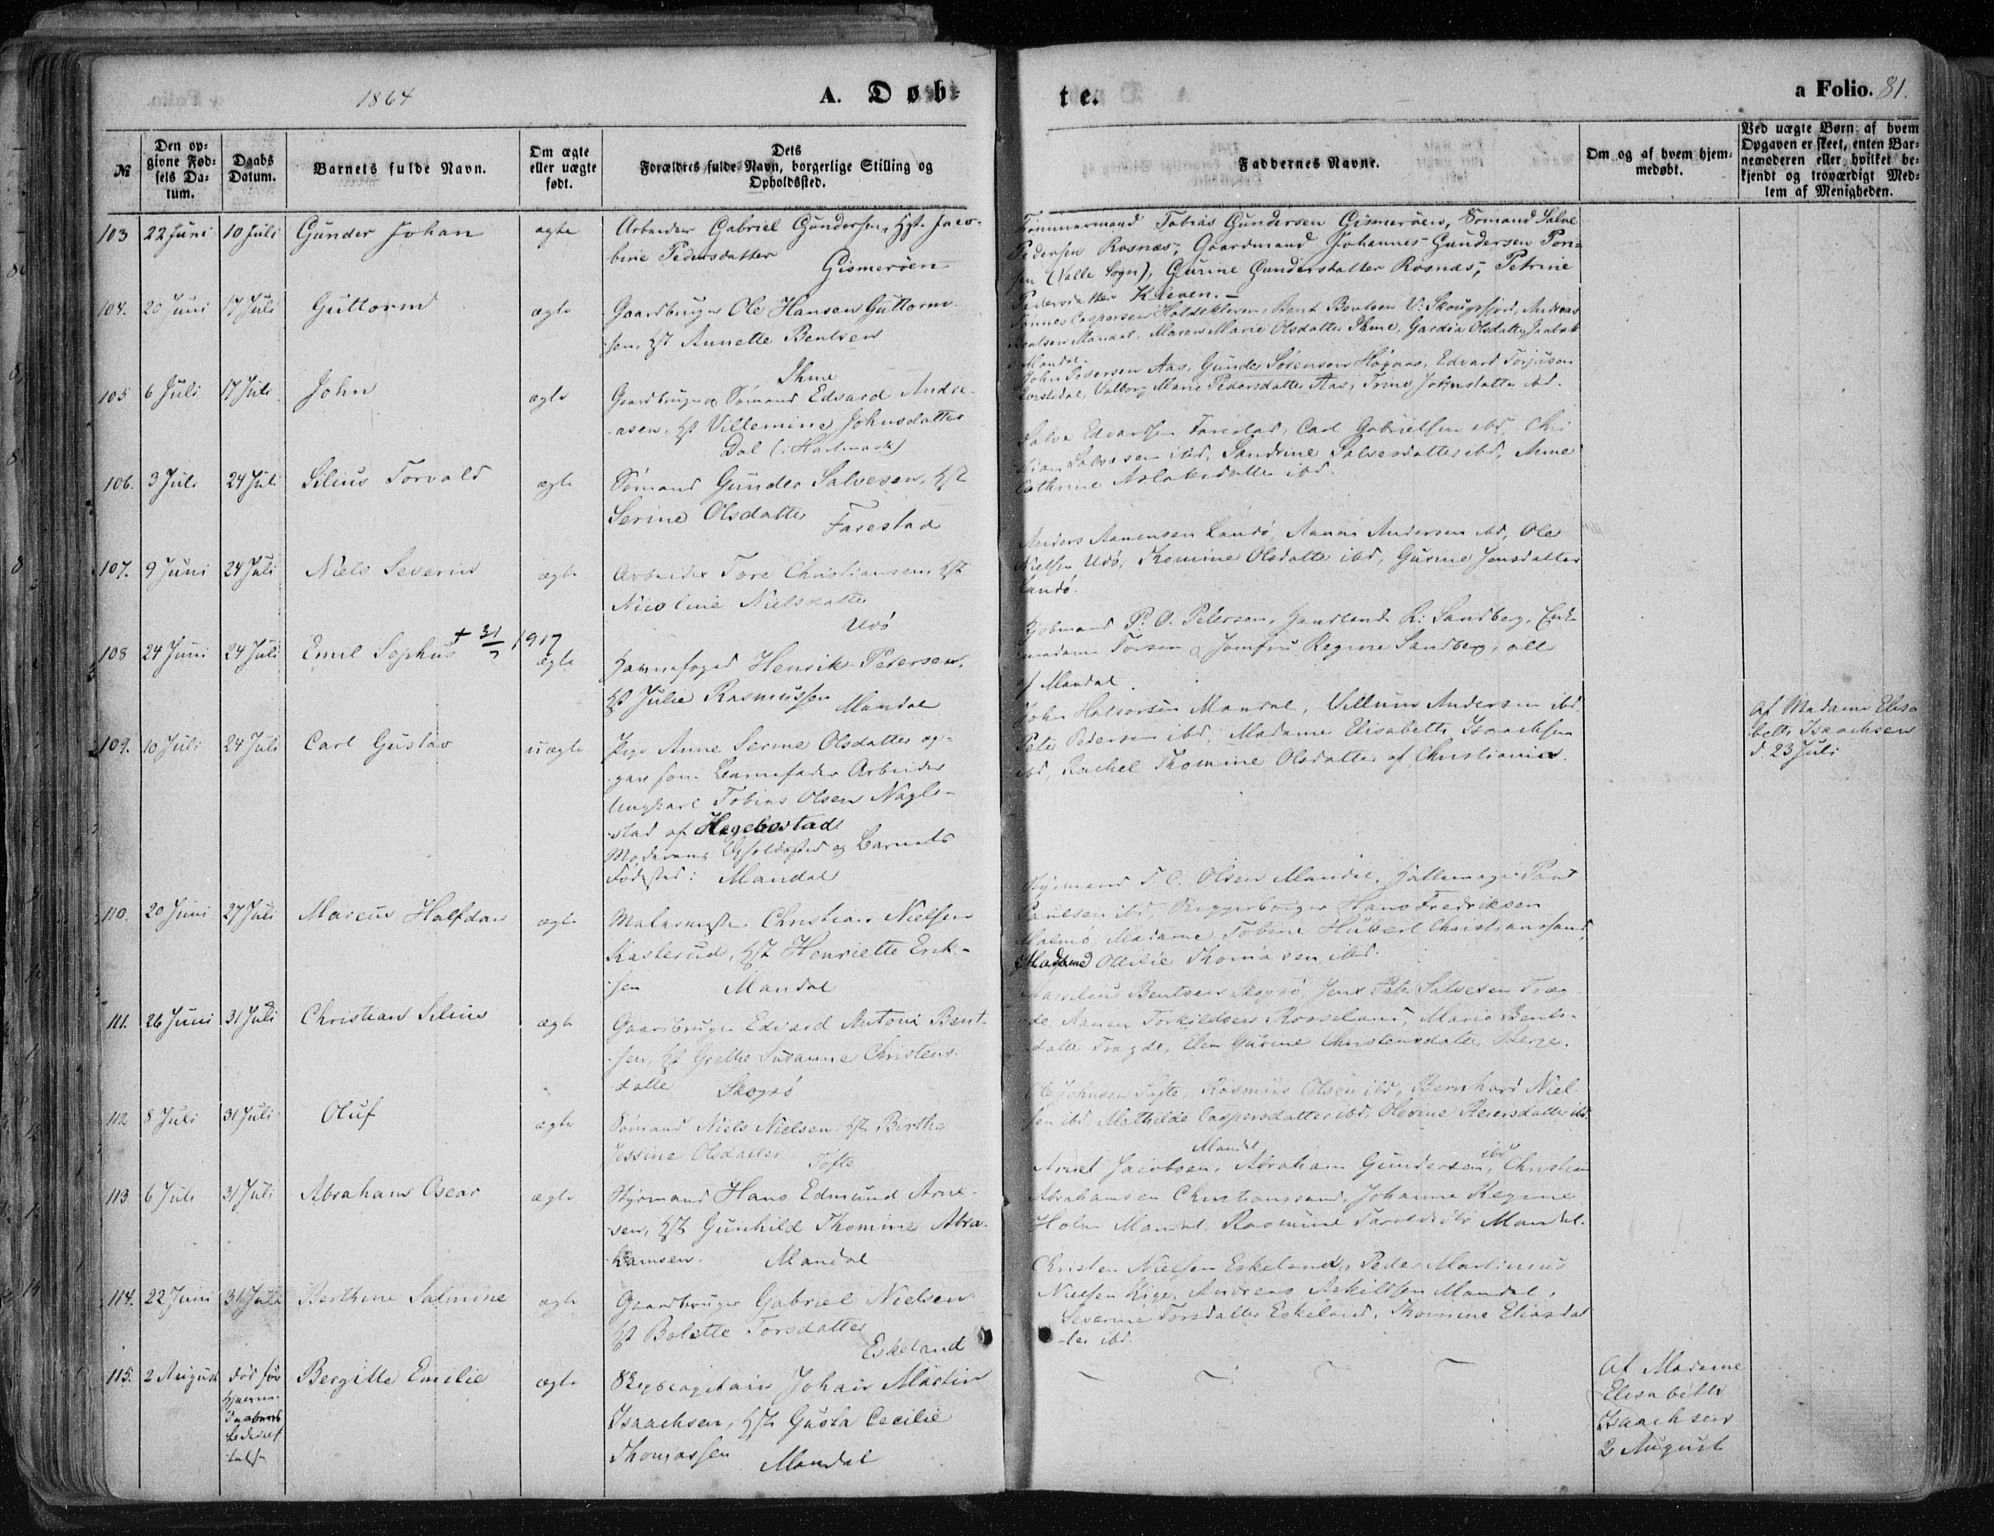 1864
A. Døb-
te.
a Folio. 81.
№
Den op-
givne Fød-
sels Da-
tum.
Daabs
Datum.
Barnets fulde Navn.
Om ægte
eller uægte
født.
Dets
Forældres fulde Navn, borgerlige Stilling og
Opholdssted.
Faddernes Navne.
Om og af hvem hjem-
medøbt.
Ved uægte Børn: af hvem
Opgaven er skeet, enten Bar-
nemoderen eller hvilket be-
kjendt og troværdigt Med-
lem af Menigheden.
103 22 Juni 10 Juli Gunder Johan ægte
Arbeider Gabriel Gundersen, Hst. Jaco-
bine Pedersdatter
Gismerøen
Tømmermand Tobias Gundersen Gismerøen, Sømand Salve
Pedersen Rosnæs, Gaardmand Johannes Gundersen
(Valle Sogn), Gurine Gundersdatter Rosnæs, Petrine
Pedersdatter Kleven.
104. 20 Juni 17 Juli Guttorm ægte
Gaardbruger Ole Hansen Guttorm-
sen, Hst Annette Bentsen
Ihme
Tønnes Caspersen Holdekleven, Bent Bentsen V. Skougsfjord, Andreas
Bentsen Mandal, Maren Marie Olsdatter Ihme, Olsdatter
Mandal.
105 6 Juli 17 Juli John ægte
Gaardbruger og Sømand Edvard Andre-
asen, Hst Villemine Johnsdatter
Dal (i Hartmark)
John Pedersen Aas, Gunder Sørensen Høgaas, Edvard Torjusen
Valborg Marie Pedersdatter Aas, Trine Johnsdatter ibd.
106. 3 Juli 24 Juli Silius Torvald ægte
Sømand Gunder Salvesen, Hst
Serine Olsdatter
Farestad
Salve Edvardsen Farestad, Carl Gabrielsen ibd, Chri
stian Salvesen ibd, Sandrine Salvesdatter ibd, Anne
Cathrine Aslaksdatter ibd.
107. 9 Juni 24 Juli Niels Severin ægte
Arbeider Tore Christiansen, Hst
Nicoline Nielsdatter
Udø
Anders Aanensen Landø, Aanen Andersen ibd, Ole
Nielsen Udø, Thomine Olsdatter ibd, Gurine Jensdatter
Landø.
108 24 Juni 24 Juli Emil Sophus + 31/7 1917
ægte
Havnefoged Henrik Petersen,
Hst Julie Rasmussen
Mandal
Kjøbmand P. O. Petersen, R. Sandberg, Enke
madame Torsen & Jomfru Regine Sandberg, alle
af Mandal.
109. 10 Juli 24 Juli Carl Gustav uægte
Pige Anne Serine Olsdatter op-
gav som Barnefader Arbeider
Ungkarl Tobias Olsen Nagle-
stad af Hegebostad
Moderens Opholdssted og Barnets
Fødested: Mandal
John Halvorsen Mandal, Villum Andersen ibd,
Peter Pedersen ibd, Madame Elisabeth Isaachsen
ibd, Rachel Thomine Olsdatter af Christiania.
Af Madame Elisa
beth Isaachsen
d. 23 Juli
110. 20 Juni 27 Juli Marcus Halfdan ægte
Malermester Christian Nielsen
Kasterud, Hst Henriette Erik-
sen
Mandal
Styrmand T. C. Olsen Mandal,
Paulsen ibd, Hans Fredriksen
Malmø, Madame Tobine Hubert Christianssand,
Madame Ottilie Thomasen ibd.
111. 26 Juni 31 Juli Christian Silius ægte
Gaardbruger Edvard Antoni Bent-
sen, Hst Grethe Susanne Christens-
datter
Skogsø
Bentsen Skogsø, Jens Peter Salvesen Træg
de, Aanen Torkildsen Rosseland, Marie Bents-
datter Trægde, Elen Gurine Christensdatter Berge.
112 8 Juli 31 Juli Oluf ægte
Sømand Niels Nielsen, Hst Birthe
Jessine Olsdatter
Tofte
Ole Johnsen Tofte, Rasmus Olsen ibd, Bernhard Niel
sen ibd, Mathilde Caspersdatter ibd, Olevine Reiersdatter ibd.
113 6 Juli 31 Juli Abraham Oscar ægte
Styrmand Hans Edmund Arne-
sen, Hst Gunhild Thomine Abra-
hamsen.
Mandal
Mandal ibd
Arnet Jacobsen, Abraham Gundersen, Christian
Abrahamsen Christianssand, Johanne Regine
Holm Mandal, Rasmine Mandal.
114. 22 Juni 31 Juli Berthine Salmine ægte
Gaardbruger Gabriel Nielsen
Hst Bolette Torsdatter
Eskeland
Christen Nielsen Eskeland, Peder Martinius
Nielsen Kige, Andreas Askildsen Mandal,
Severine Torsdatter Eskeland, Thomine Eliasdat
ter ibd.
115. 2 August død før
Hjemme-
daabens
bekræf-
telse
Bergitte Emilie ægte
Skibscapitain Johan Martin
Isaachsen, Hst Gusta Cecilie
Thomassen
Mandal
Af Madame
Elisabeth
Isaachsen
2 August